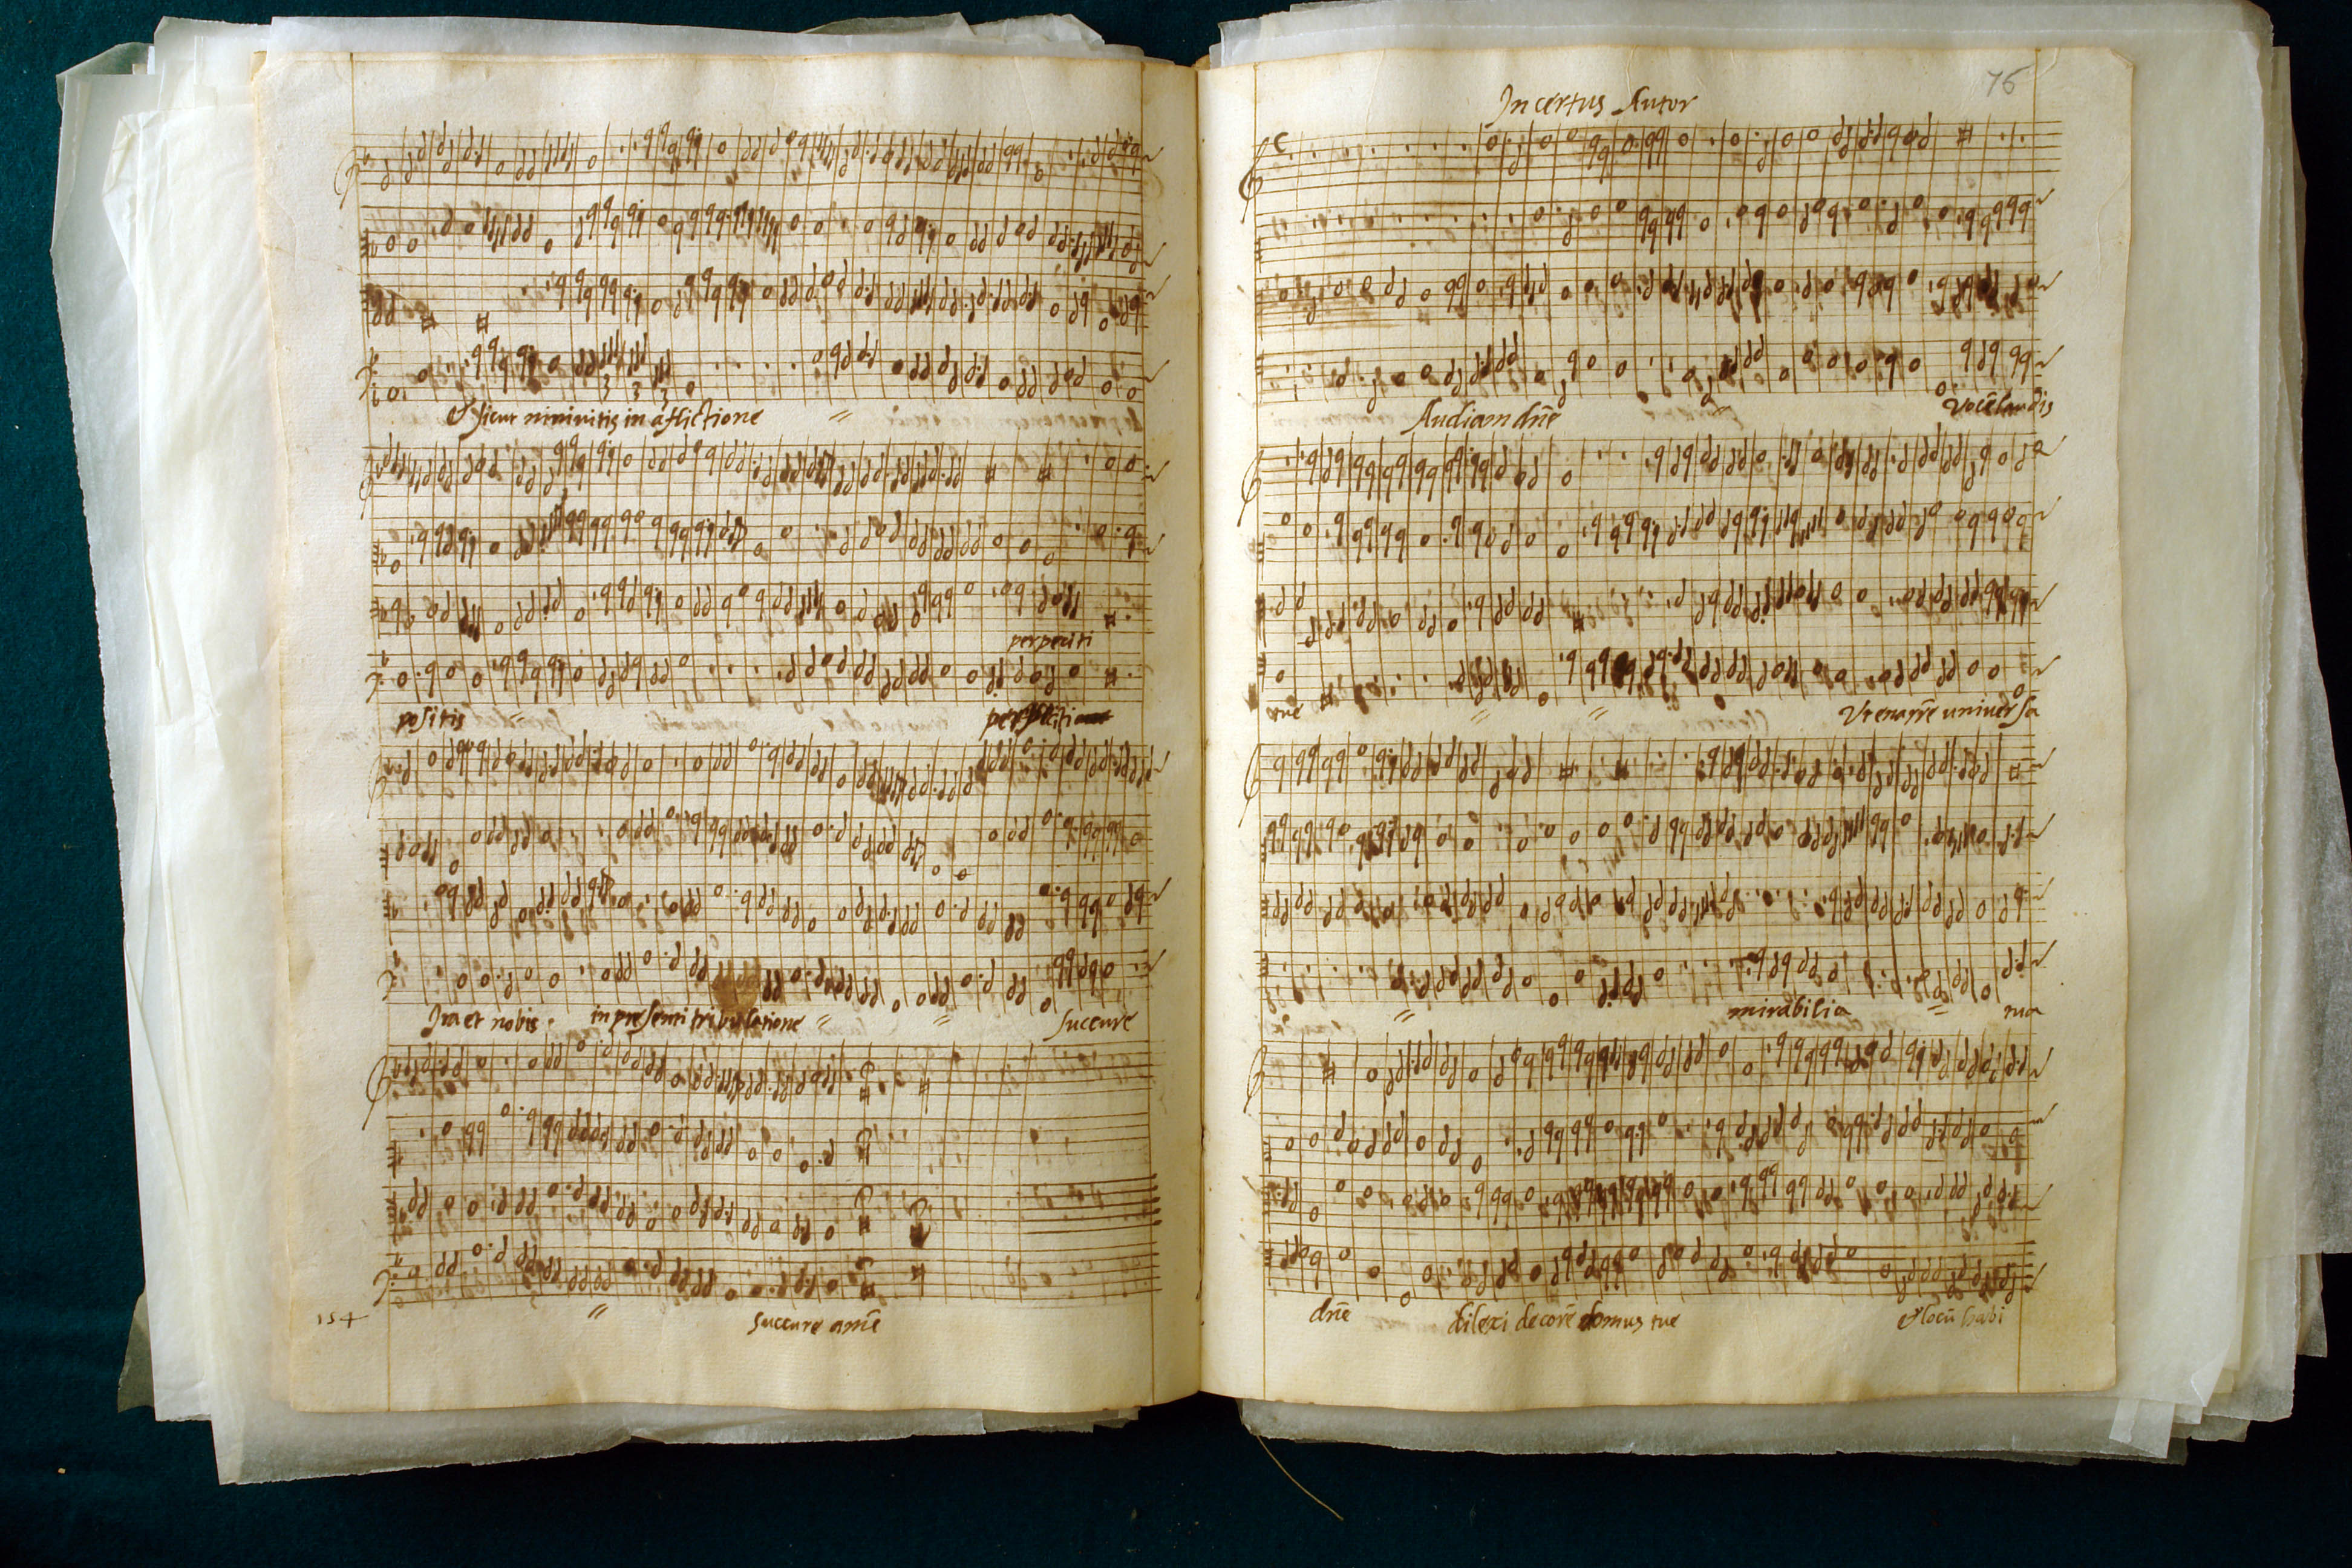 Et sicut ninivitis in aflictione
perpeciti
positis
Ita et nobis in presenti tribulatione succure
154
succure amē
76
Incertus Autor
Audiam dn̄e Vocē laudis
tue Vt enarrē universa
mirabilia tua
dn̄e dilexi decorē domus tue et locū habi